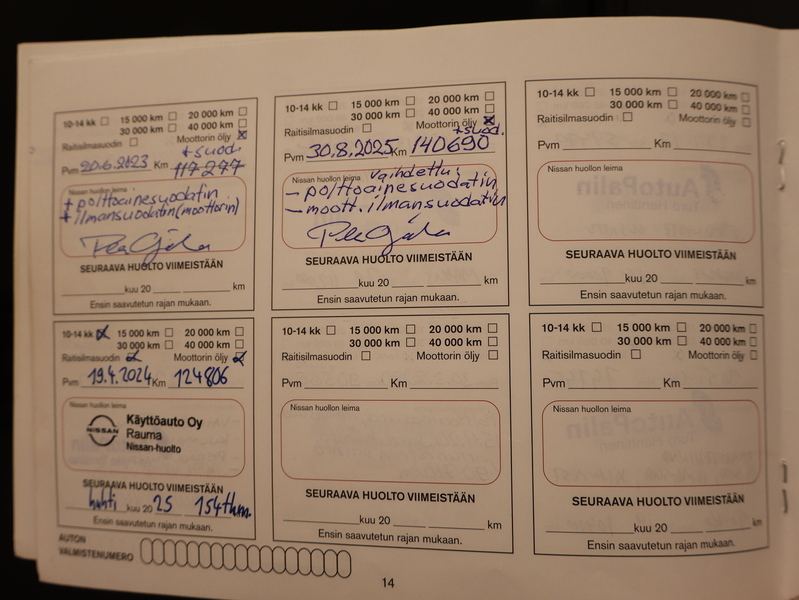 10-14 kk 15 000 km 20 000 km
30 000 km 40 000 km
Raitisilmasuodin Moottorin öljy
+suod.
Pvm 20.6.2023 Km 117277
Nissan huollon leima
+ polttoainesuodatin
+ ilmansuodatin (moottorin)
SEURAAVA HUOLTO VIIMEISTÄÄN
kuu 20 km
Ensin saavutetun rajan mukaan.
10-14 kk 15 000 km 20 000 km
30 000 km 40 000 km
Raitisilmasuodin Moottorin öljy
+suod.
Pvm 30.8.2025 Km 140690
Nissan huollon leima vaihdettu:
- polttoainesuodatin
- moott. ilmansuodatin
SEURAAVA HUOLTO VIIMEISTÄÄN
kuu 20 km
Ensin saavutetun rajan mukaan.
10-14 kk 15 000 km 20 000 km
30 000 km 40 000 km
Raitisilmasuodin Moottorin öljy
Pvm Km
Nissan huollon leima
SEURAAVA HUOLTO VIIMEISTÄÄN
kuu 20 km
Ensin saavutetun rajan mukaan.
10-14 kk 15 000 km 20 000 km
30 000 km 40 000 km
Raitisilmasuodin Moottorin öljy
Pvm 19.4.2024 Km 124806
Nissan huollon leima
NISSAN
Käyttöauto Oy
Rauma
Nissan-huolto
SEURAAVA HUOLTO VIIMEISTÄÄN
huhti kuu 20 25 154 tkm
Ensin saavutetun rajan mukaan.
10-14 kk 15 000 km 20 000 km
30 000 km 40 000 km
Raitisilmasuodin Moottorin öljy
Pvm Km
Nissan huollon leima
SEURAAVA HUOLTO VIIMEISTÄÄN
kuu 20 km
Ensin saavutetun rajan mukaan.
10-14 kk 15 000 km 20 000 km
30 000 km 40 000 km
Raitisilmasuodin Moottorin öljy
Pvm Km
Nissan huollon leima
SEURAAVA HUOLTO VIIMEISTÄÄN
kuu 20 km
Ensin saavutetun rajan mukaan.
AUTON
VALMISTENUMERO
14